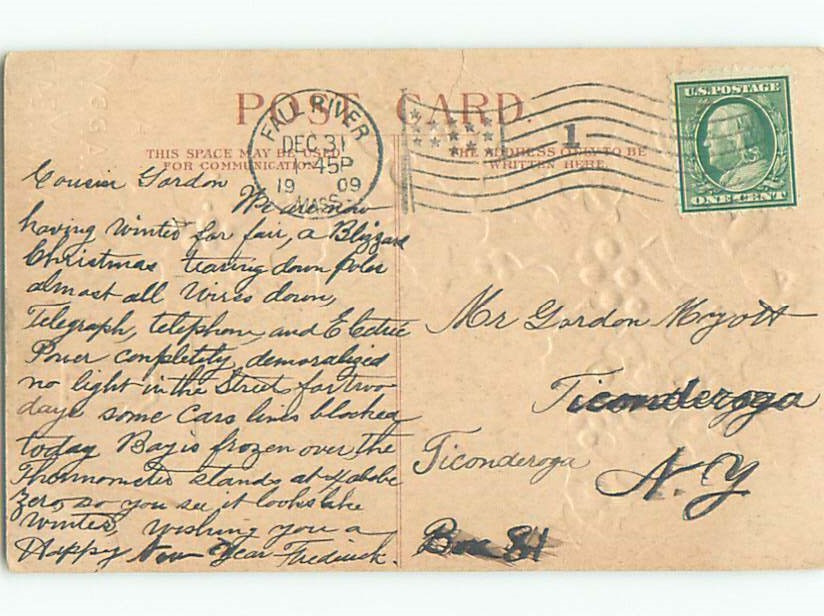 POST CARD.
THIS SPACE MAY BE USED
FOR COMMUNICATION.
THE ADDRESS ONLY TO BE
WRITTEN HERE.
FALL RIVER
DEC 31
1-45P
19 09
MASS.
1
U.S. POSTAGE
ONE CENT
Cousin Gordon
We are now
having winter for fair, a Blizzard
Christmas tearing down Poles
almost all wires down,
Telegraph, telephone, and Electric
Power completity demoralized
no light in the Streets for two
days some cars lines blocked
today Bay is frozen over the
Thermometer stands at 4 above
Zero, so you see it looks like
winter, wishing you a
Happy New Year Fredrick.
Mr Gordon Moyott
Ticonderoga
Ticonderoga
N.Y
Box 81